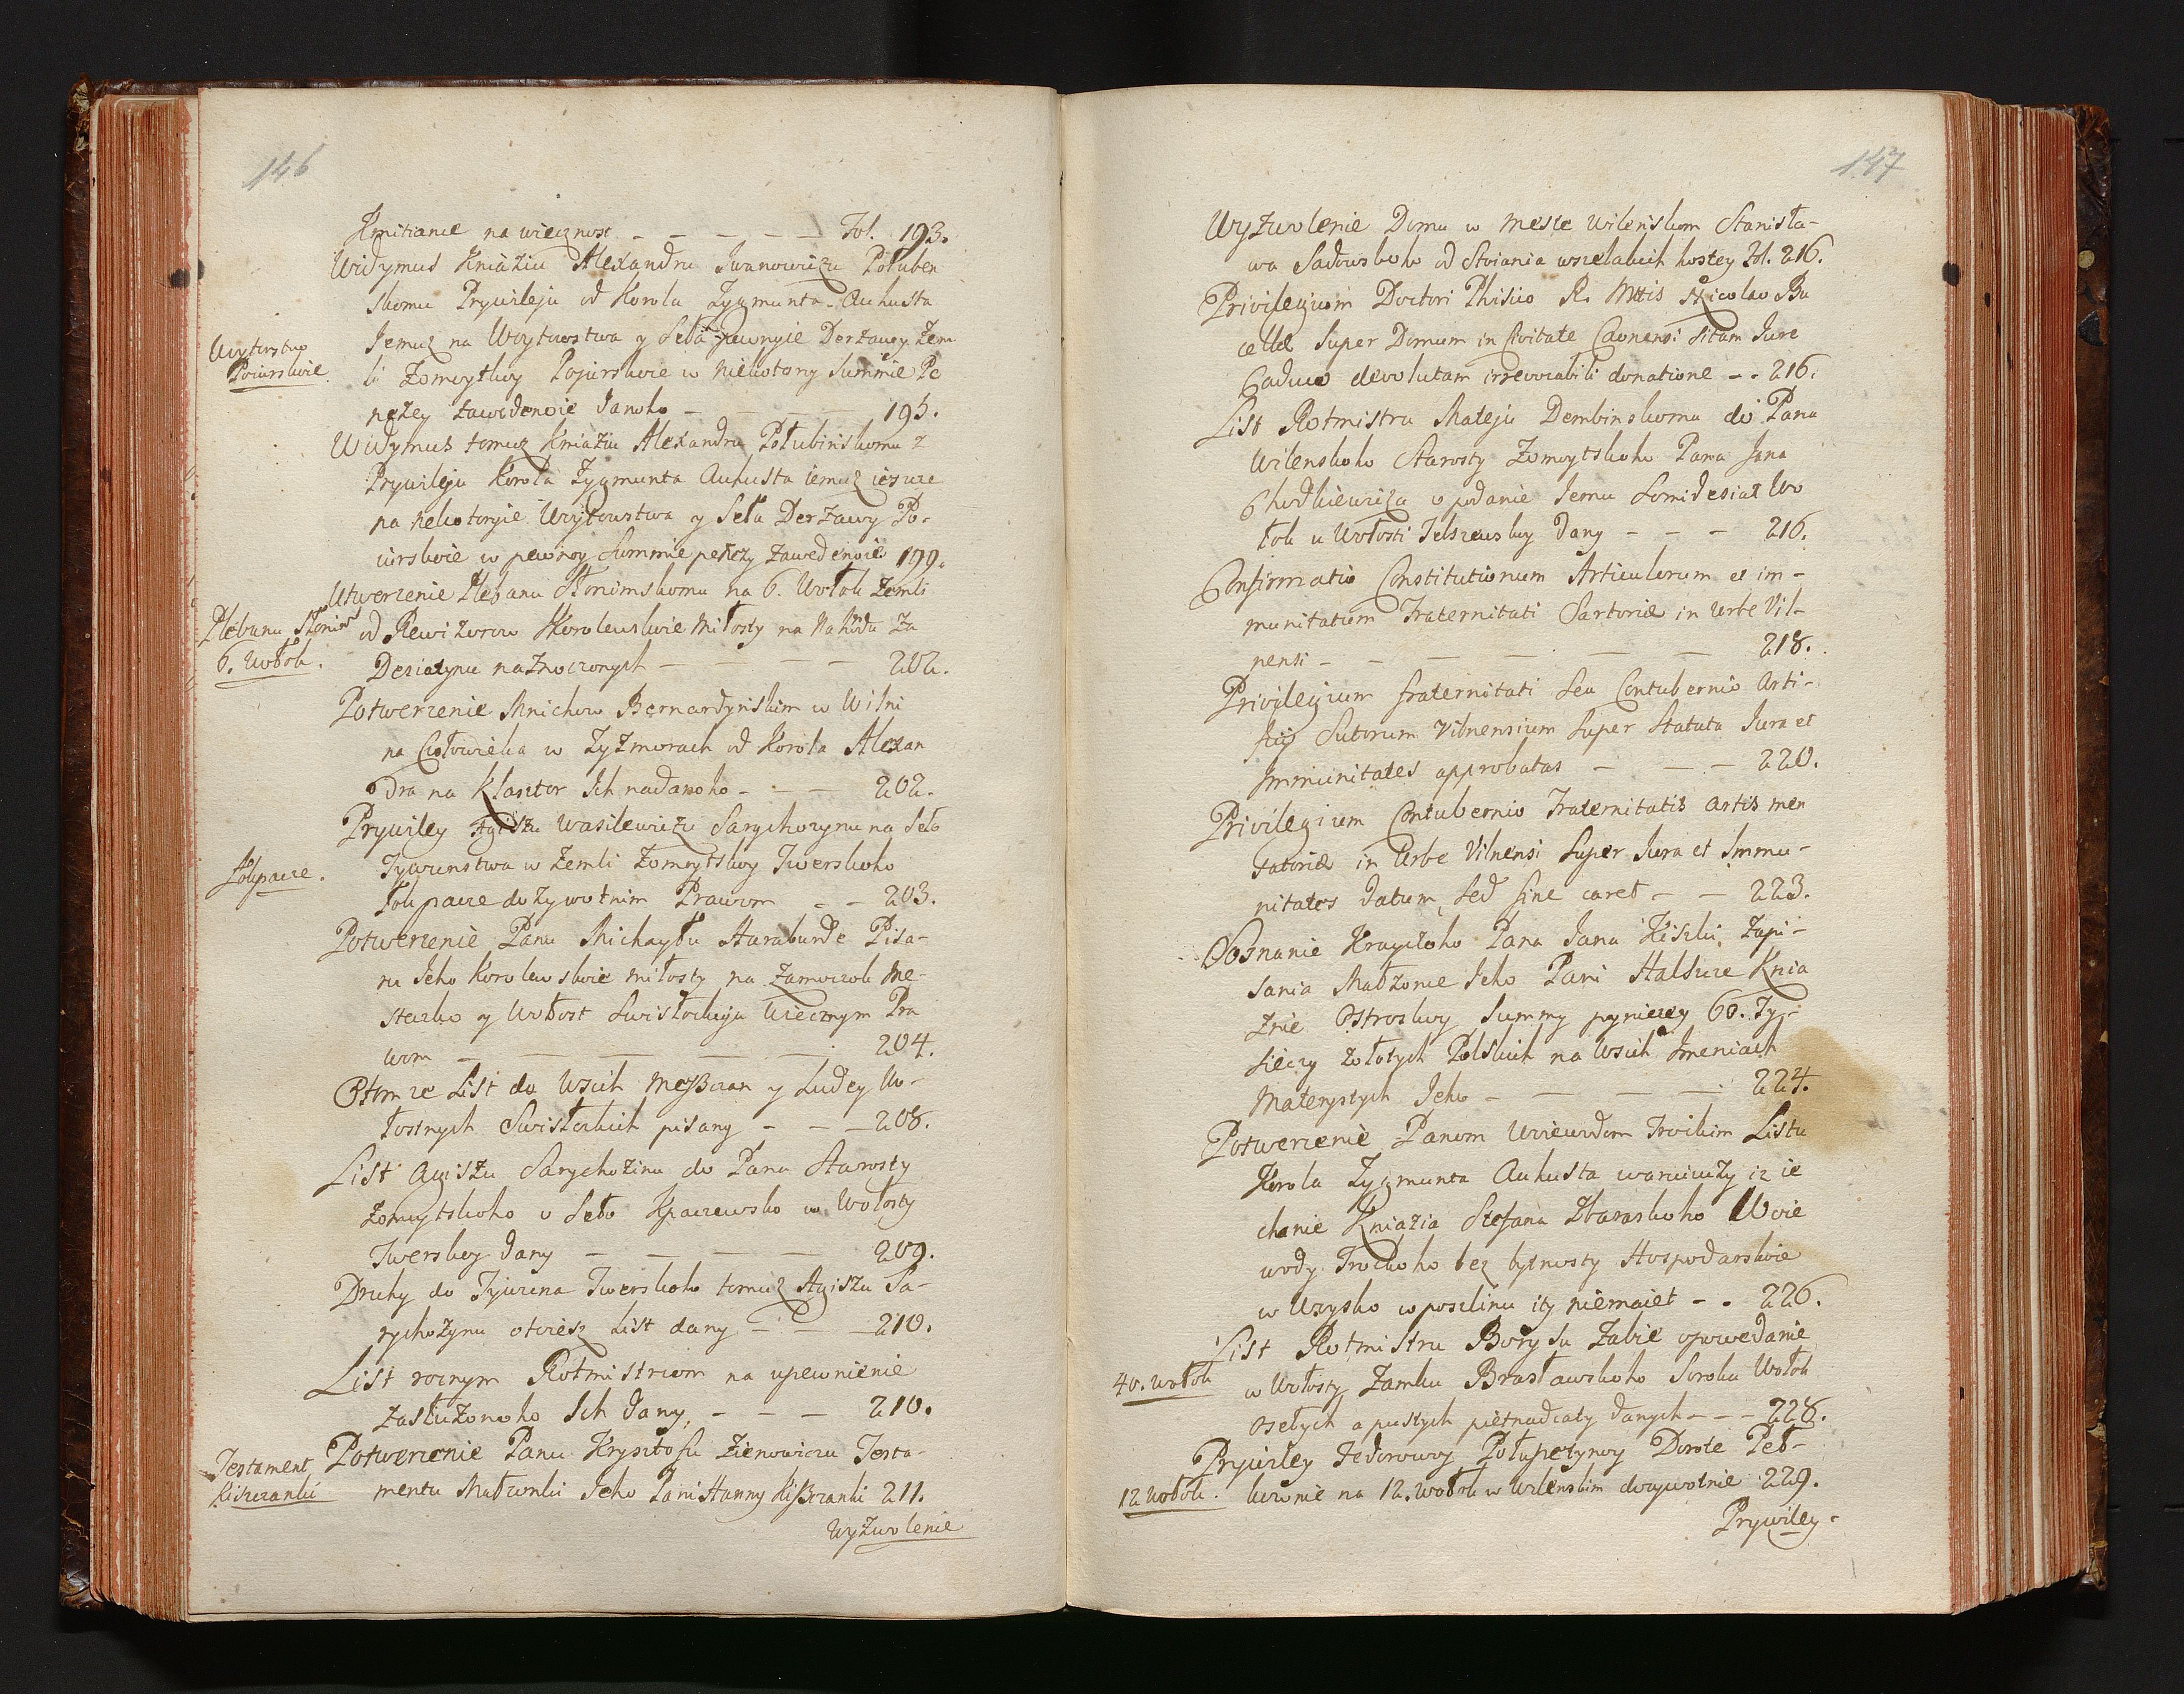 146
Kmitiance na wiecznost - - - - - Fol. 193.
Widymus Kniaziu Alexandru Iwanowiczu Połuben
skomu Prywileju od Korola Zygmunta Auhusta
Jemuż na Woytowstwa y Seła pewnyie Derżawy Zem
Woytowstwo
Poiurskoie
li Żomoytskoy Pojurskoie w niekotory Summie Pe
nezey zawedenoie danoho - - - - 195.
Widymus tomuż Kniaziu Alexandru Połubinskomu z
Prywileju Korola Zygmunta Auhusta iemuż ieszcze
na nekotoryie Woytowstwa y Seła Derżawy Po-
iurskoie w pewnoy Summie penezy zawedenoie 199.
Utwerzenie Plebanu Słonimskomu na 6. Wołok Zemli
Plebanu Słonims
6. Wołok.
od Rewizorow Korolewskoie Miłosty na Nahrodu Za
Desiatynu naznoczonych - - - - 202.
Potwerzenie Mnichow Bernardynskim w Wilni
na Człowieka w Zyzmorach od Korola Alexan
dra na Klasztor Ich nadanoho - - - 202.
Prywiley Agiszu Wasilewiczu Sarychozynu na Seło
Tywunstwa w Zemli Żomoytskoy Twerskoho
Łokpacze.
Łokpacze dożywotnim Prawom - - 203.
Potwerzenie Panu Michayłu Haraburdе Pisa-
ru Jeho Korolewskoie miłosty na Zamoczok Me-
steczko y Wołost Swisłockuju Wiecznym Pra
wom - - - - - 204.
O tom ze List do Wsich Meszczan y Ludey Wo-
łostnych Swisłockich pisany - - - 208.
List Agiszu Sarychozinu do Pana Starosty
Zomoytskoho o Seło Kpaczewsko w Wołosty
Twerskoy dany - - - - 209.
Druhy do Tywuna Twerskoho tomuż Agiszu Sa-
rychozynu otoiesz List dany - - - 210.
List roznym Rotmistrom na upewnienie
zasłużonoho Ich dany, - - - 210.
Potwerzenie Panu Krysztofu Zienowiczu Testa-
Testament
Kiszczanki
mentu Małzonki Jeho Pani Hanny Kiszczanki 211.
Wyzwolenie
147
Wyzwolenie Domu w Meste Wilenskom Stanisła-
wa Sadowskoho od Stoiania wszelakich hostey fol. 216.
Privilegium Doctori Phisico R. Mttis Nicolao Bu
cellae Super Domum in Civitate Caonensi sitam Jure
Caduco devolutam irrevocabili donatione - - 216.
List Rotmistru Mateju Dembinskomu do Pana
Wilenskoho Starosty Zomoytskoho Pana Jana
Chodkiewicza o podanie Jemu Somidesiat Wo
łok u Wołosti Telszewskoy dany - - - 216.
Confirmatio Constitutionum Articulorum et im-
munitatum Fraternitati Sartoriae in Urbe Vil-
nensi - - - - - 218.
Privilegium fraternitati Seu Contubernio Arti-
ficij Sutorum Vilnensium Super Statuta Jura et
Immunitates approbatas - - - 220.
Privilegium Contubernio Fraternitatis artis men
satoriae in Urbe Vilnensi Super Jura et Immu-
nitates datum, Sed fine caret - - 223.
Soznanie Krayczoho Pana Jana Kiszki Zapi-
sania Małzonce Jeho Pani Halszce Knia
znie Ostroskoy Summy pyniezey 60. Ty-
sieczy Zołotych Polskich na Wsich Imeniach
Materystych Jeho - - - - 224.
Potwerzenie Panom Woiewodom Trockim Listu
Korola Zygmunta Auhusta waruiuczy iz ie
chanie Kniazia Stefana Zbarazkoho Woie
wody Trockoho bez bytnosty Hospodarskoie
w Uzysko w poszlinu ity niemaiet - - 226.
List Rotmistru Borysu Zabie opowedanie
40. Wołok
w Wołosty Zamku Brasławskoho Soroku Wołok
osełych a pustych pietnadcaty danych - - - 228.
Prywiley Fedorowoy Połupetynoy Dorote Peł-
12 Wołok.
kowne na 12. Wołok w Wilenskim dozywotnie 229.
Prywiley